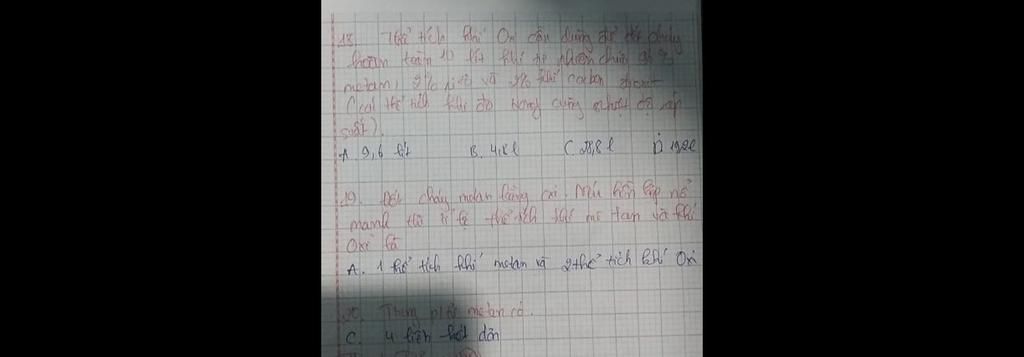 18. Thể tích khí Oxi cần dùng để đốt cháy
hoàn toàn 10 lít khí tự nhiên chứa 96%
metan, 2% nitơ và 2% khí cacbon đioxit
(các thể tích khí đo trong cùng nhiệt độ áp
suất)
A. 9,6 lít B. 4,8 l C. 28,8 l D 19,2 l
19. Đốt cháy metan bằng oxi. Nếu hỗn hợp nổ
mạnh thì tỉ lệ thể tích khí me tan và khí
Oxi là
A. 1 thể tích khí metan và 2 thể tích khí Oxi
20. metan có.
C. 4 liên kết đơn